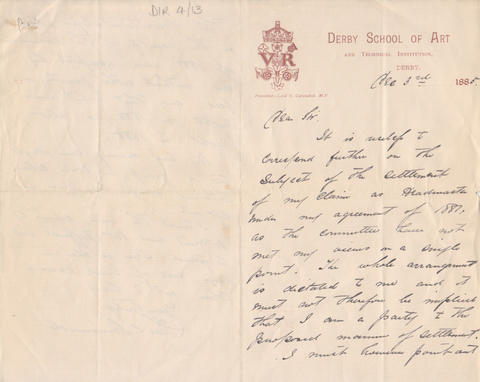 DIR 4/13
VR
DERBY SCHOOL OF ART
AND TECHNICAL INSTITUTION,
DERBY.
President:- Lord E. Cavendish, M.P.
Dec 3rd 1885.
Dear Sir.
It is useless to
correspond further on the
subject of the settlement
of my claim as Headmaster
under my agreement of 1881,
as the committee have not
met my views on a single
point. The whole arrangement
is dictated to me and it
must not therefore be implied
that I am a party to the
proposed manner of settlement.
I must however point out